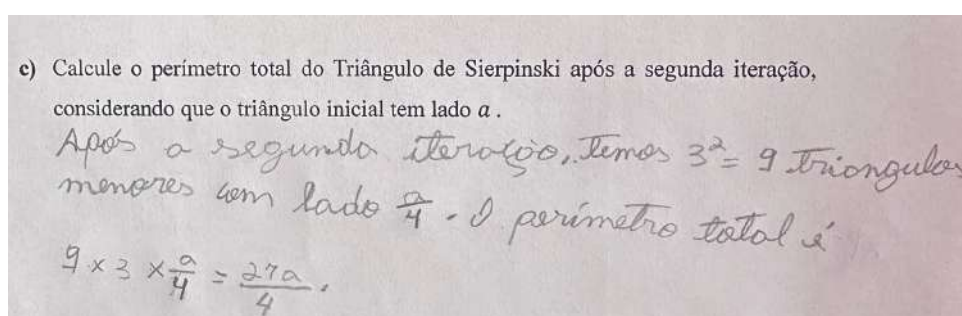 c) Calcule o perímetro total do Triângulo de Sierpinski após a segunda iteração,
considerando que o triângulo inicial tem lado a .
Após a segunda iteração, temos 3² = 9 triangulos
menores com lado a/4 . O perímetro total é
9 x 3 x a/4 = 27a/4 .